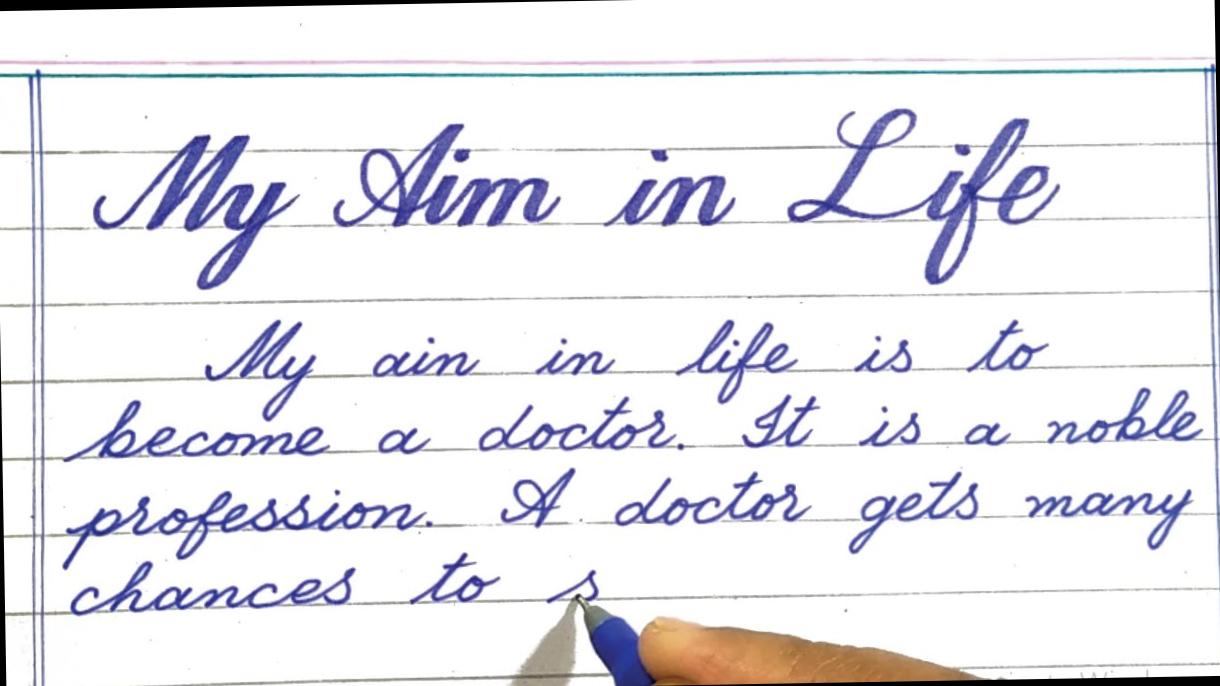 My Aim in Life
My ain in life is to
become a doctor. It is a noble
profession. A doctor gets many
chances to s